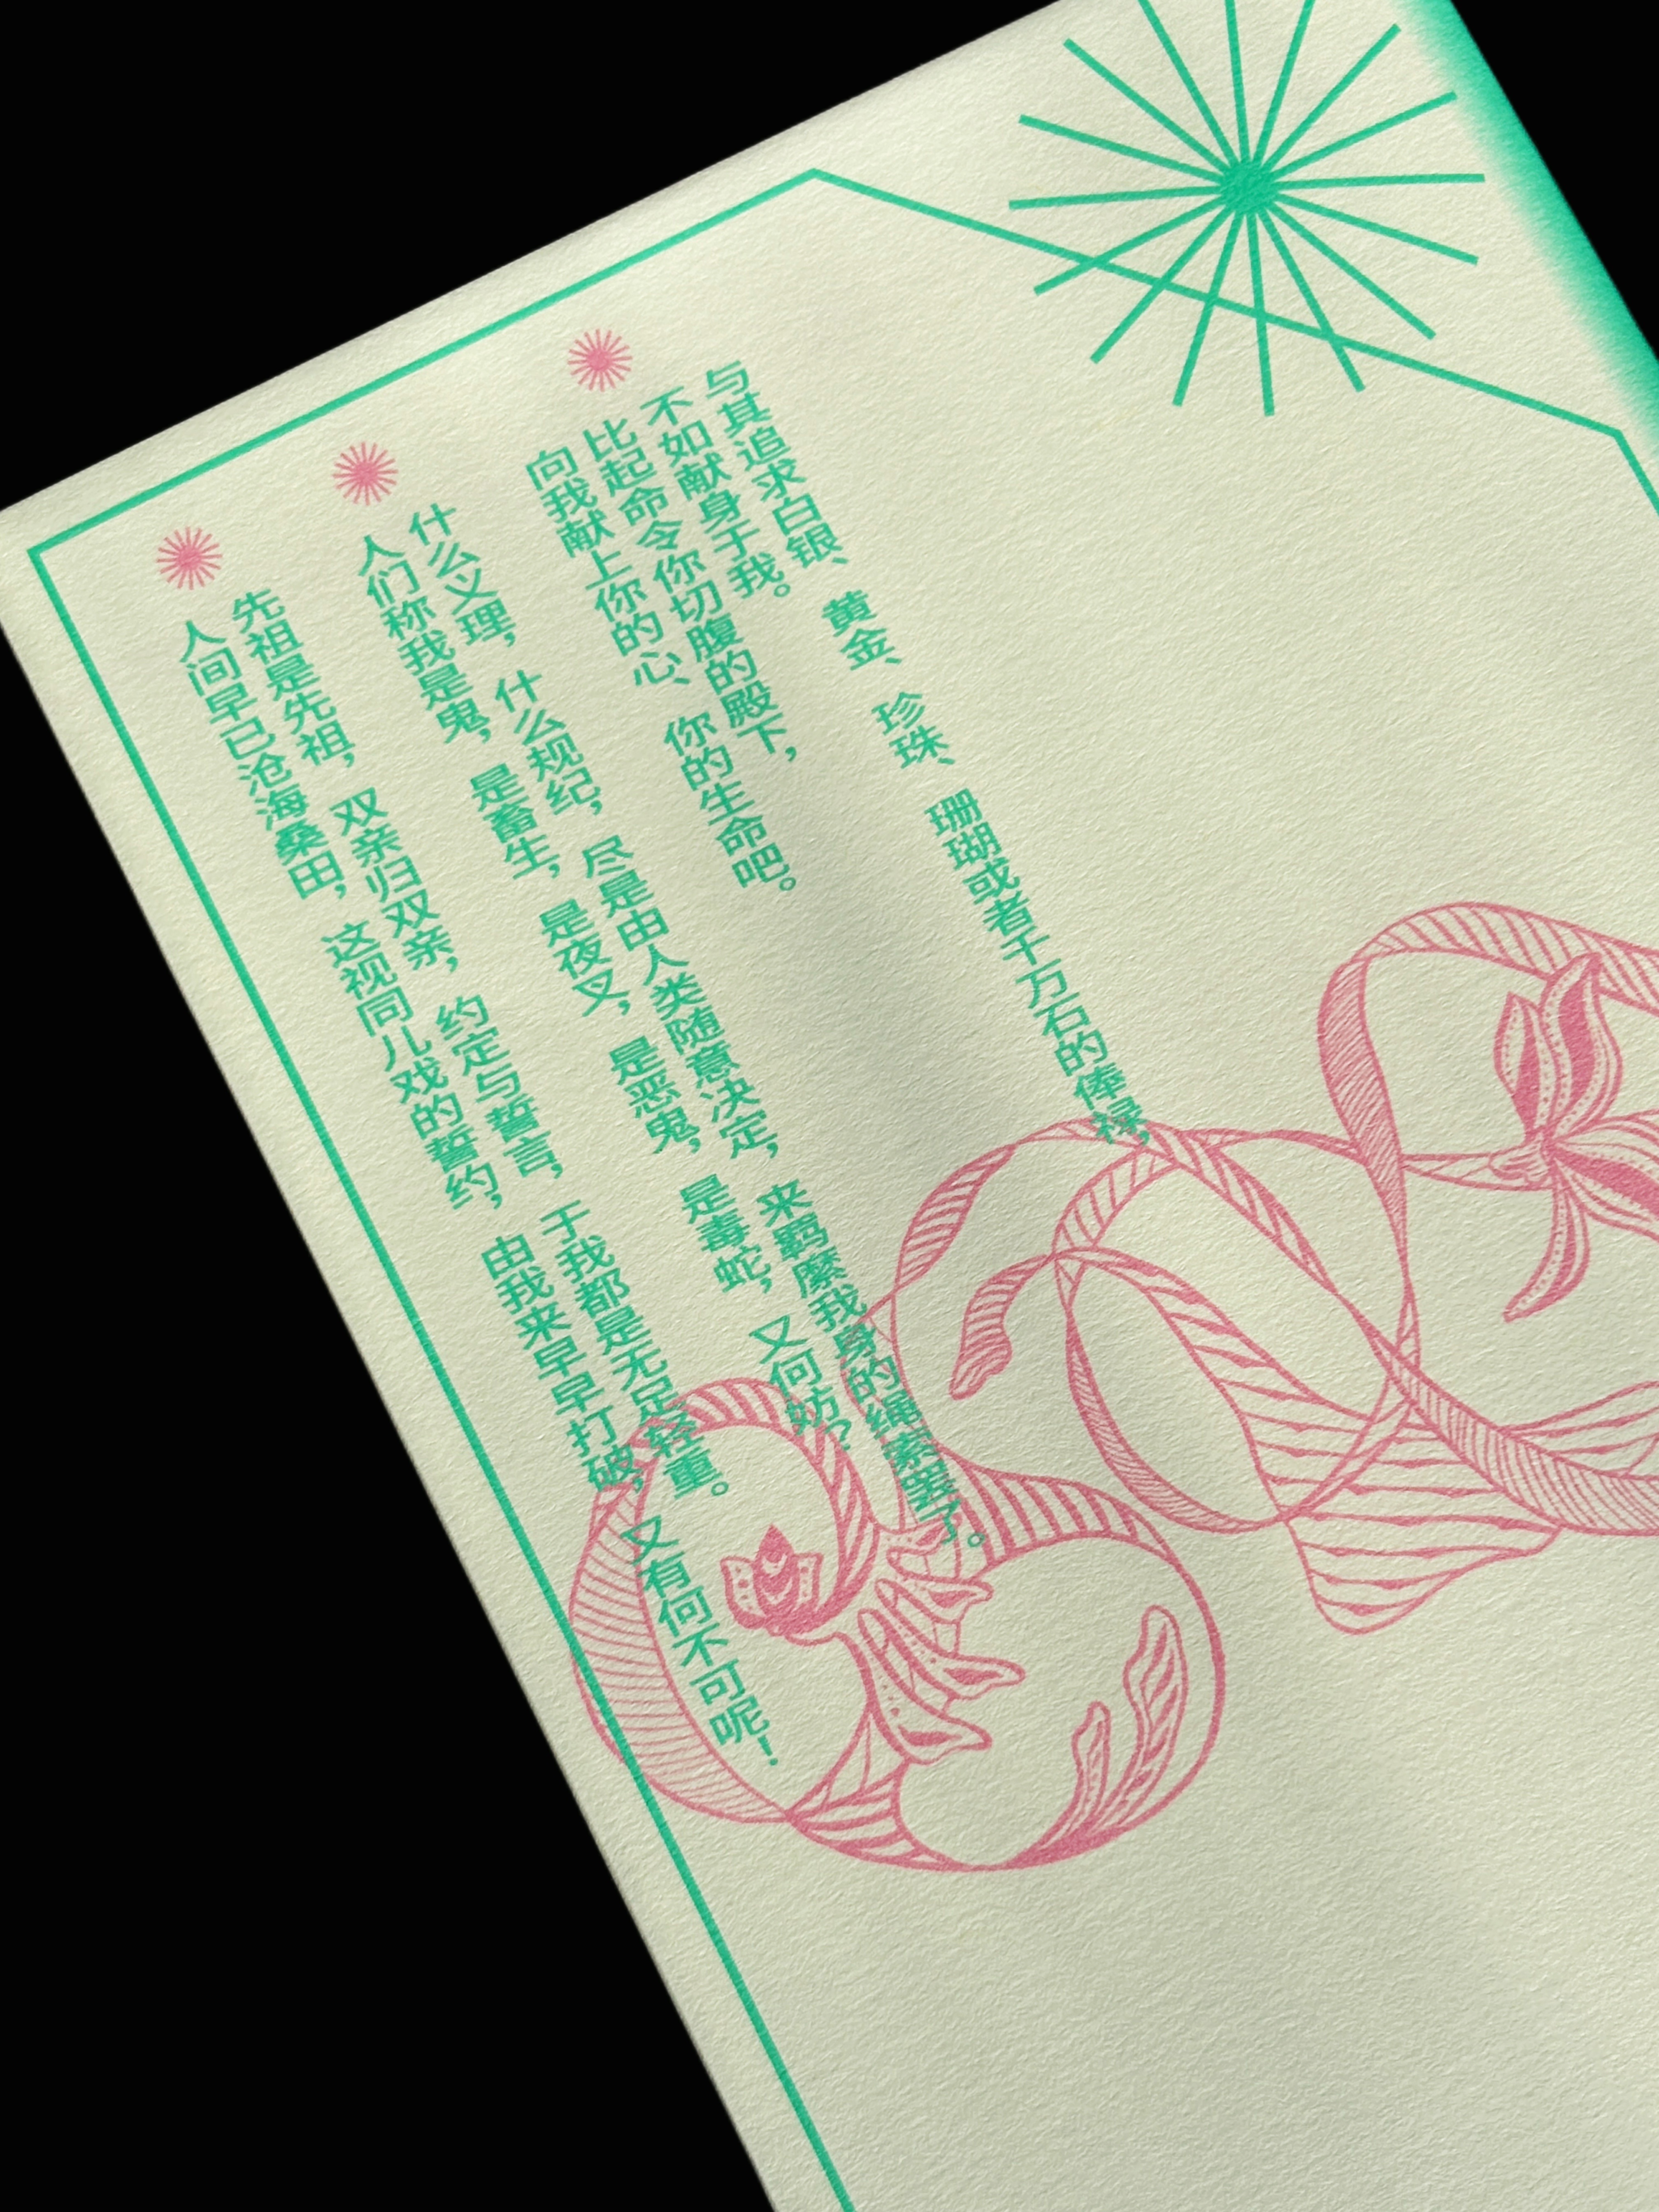 与其追求白银、黄金、珍珠、珊瑚或者千万石的俸禄，
不如献身于我。
比起命令你切腹的殿下，
向我献上你的心、你的生命吧。
什么义理，什么规纪，尽是由人类随意决定，来羁縻我身的绳索罢了。
人们称我是鬼，是畜生，是夜叉，是恶鬼，是毒蛇，又何妨？
先祖是先祖，双亲归双亲，约定与誓言，于我都是无足轻重。
人间早已沧海桑田，这视同儿戏的誓约，由我来早早打破，又有何不可呢！